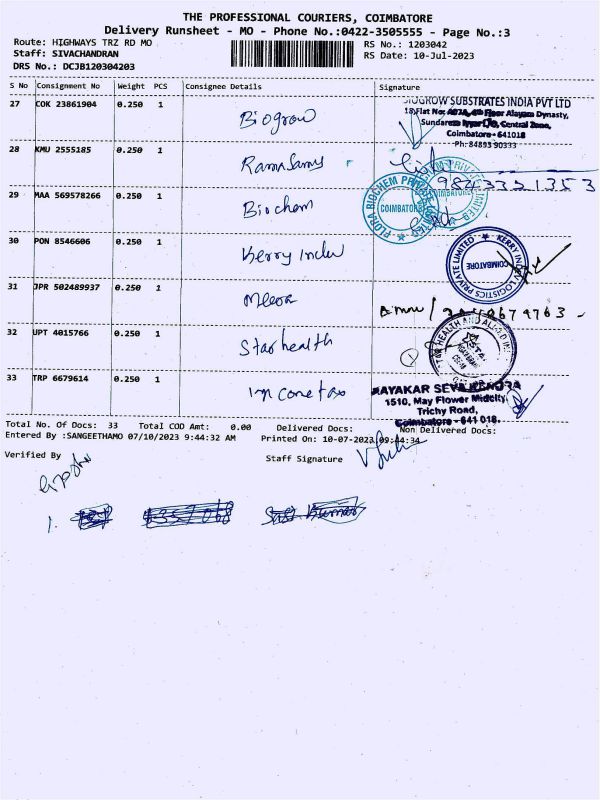 THE PROFESSIONAL COURIERS, COIMBATORE
Delivery Runsheet - MO - Phone No.:0422-3505555 - Page No.:3
Route: HIGHWAYS TRZ RD MO
RS No.: 1203042
Staff: SIVACHANDRAN
RS Date: 10-Jul-2023
DRS No.: DCJB120304203
S No Consignment No Weight PCS Consignee Details Signature
27 COK 23861904 0.250 1 Biogrow
BIOGROW SUBSTRATES INDIA PVT LTD
18, Flat No: 4th Floor Alayam Dynasty,
Sundaresa Central Zone,
Coimbatore - 641018
Ph: 84893 90333
28 KMU 2555185 0.250 1 Ramsamy
9843321353
29 MAA 569578266 0.250 1 Biochem
FLORA BIOCHEM PRIVATE LIMITED
COIMBATORE
30 PON 8546606 0.250 1 Kerry Indev
KERRY INDEV LOGISTICS PRIVATE LIMITED
COIMBATORE
31 JPR 502489937 0.250 1 Meera
32 UPT 4015766 0.250 1 Star health
STAR HEALTH AND ALLIED
33 TRP 6679614 0.250 1 Income tax
AAYAKAR SEVA KENDRA
1510, May Flower Midcity,
Trichy Road,
Coimbatore - 641 018.
Total No. Of Docs: 33 Total COD Amt: 0.00 Delivered Docs: Non Delivered Docs:
Entered By :SANGEETHAMO 07/10/2023 9:44:32 AM Printed On: 10-07-2023 09:44:34
Verified By
Staff Signature
1.